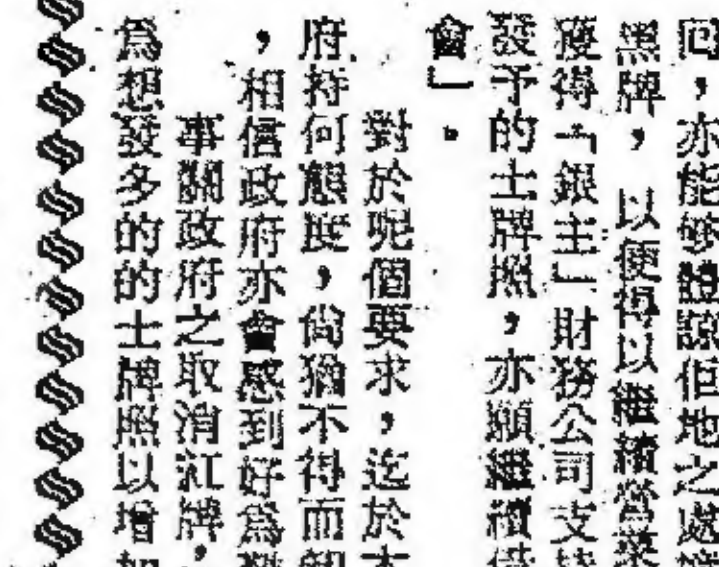 囘，亦能够體諒佢地之處境
黑牌，以便得以繼續營業
獲得「銀主」財務公司支持
發予的士牌照，亦願繼續借
會」。
對於呢個要求，迄於本
府持何態度，尙猶不得而知
，相信政府亦會感到好爲難
事關政府之取消紅牌，
爲想發多的的士牌照以增加